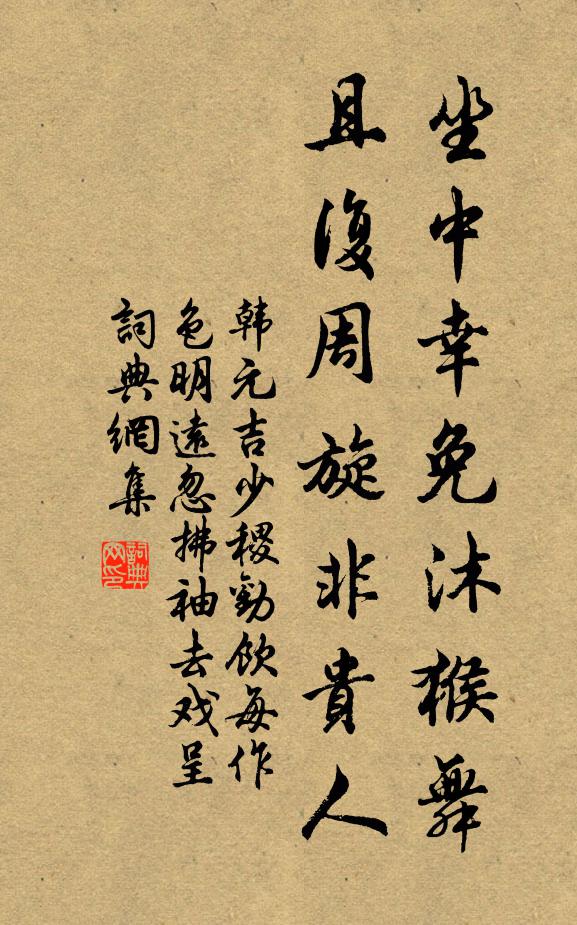 坐中幸免沐猴舞
且復周旋非貴人
韩元吉少稷勸飲每作
色明遠忽拂袖去戏呈
詞典網集
詞典网印